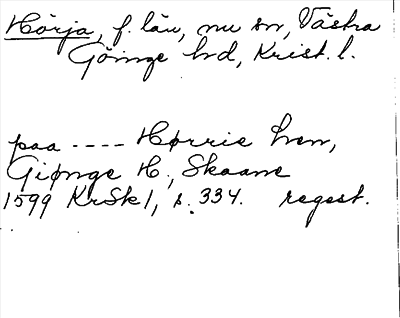 Hörja, f. län, nu sn, Västra
Göinge hd, Krist. l.
paa ---- Hørrie hren,
Giønge H., Skaane
1599 KrSkl, s. 334. regest.